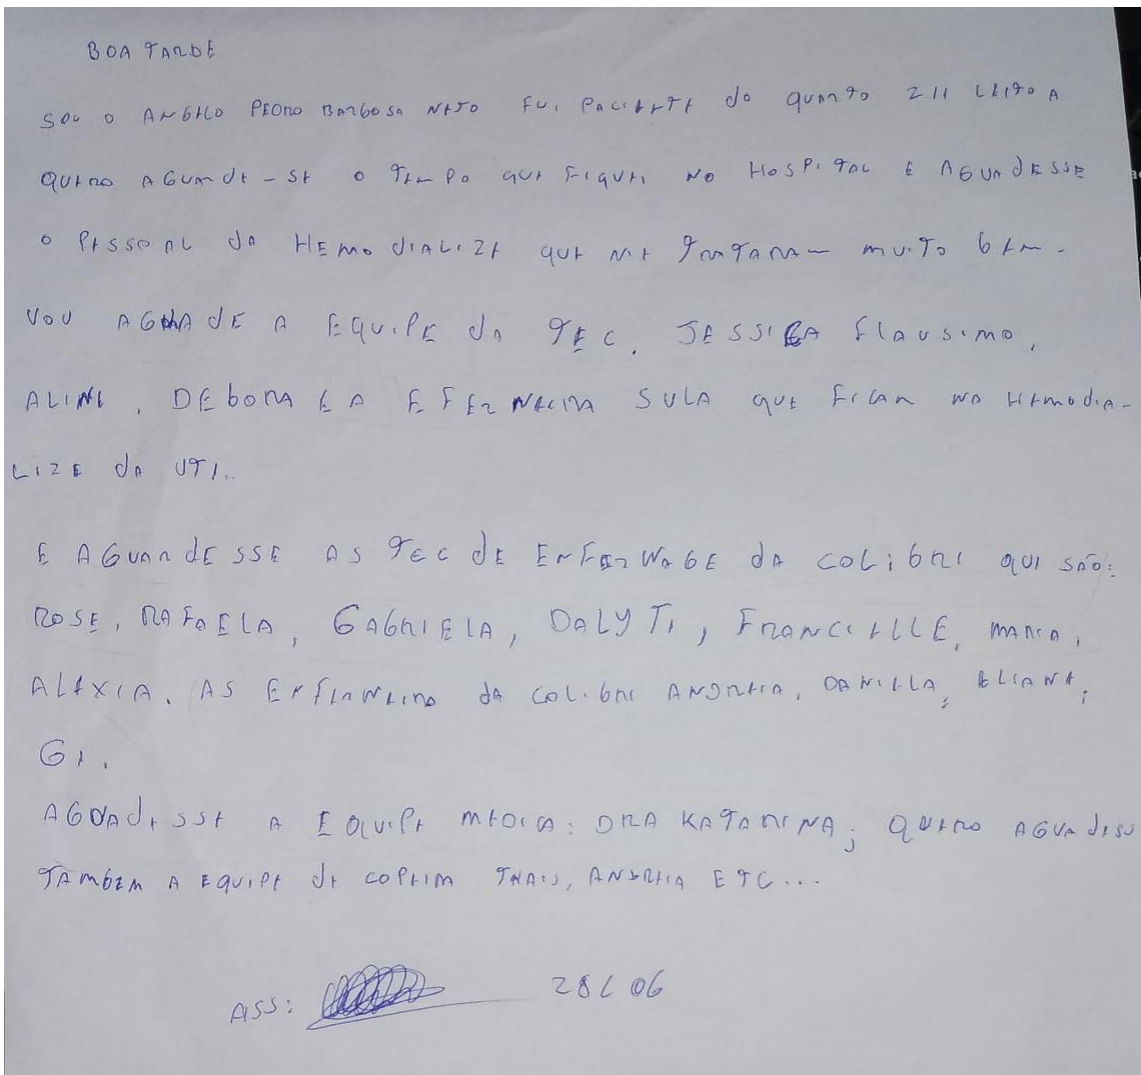 BOA TARDE
SOU O ANGELO PEDRO BARBOSA NETO FUI PACIENTE do quarto 211 LEITO A
QUERO AGUADE-SE O TEMPO QUE FIQUEI NO HOSPITAL E AGUADESSE
O PESSOAL DA HEMODIALIZE QUE ME TRATARAM MUITO BEM.
VOU AGUADE A EQUIPE da TEC. JESSICA FLAUSIMO,
ALINE, DEBORA E A EFERNEEIRA SULA QUE FICAM NA HEMODIA-
LIZE da UTI..
E AGUARDESSE AS TEC dE ENFERMAGE DA COLIBRI QUI SÃO:
ROSE, RAFAELA, GABRIELA, DALYTI, FRANCIELLE, MARIA,
ALEXIA. AS ENFERMEIRA dA COLIBRI ANDREIA, DANIELLA, ELIANE,
GI.
AGUADESSE A EQUIPE MEDICA: DRA KATARINA; QUERO AGUADESSE
TAMBEM A EQUIPE DE COPEIRA THAIS, ANDREIA ETC...
ASS: 28/06